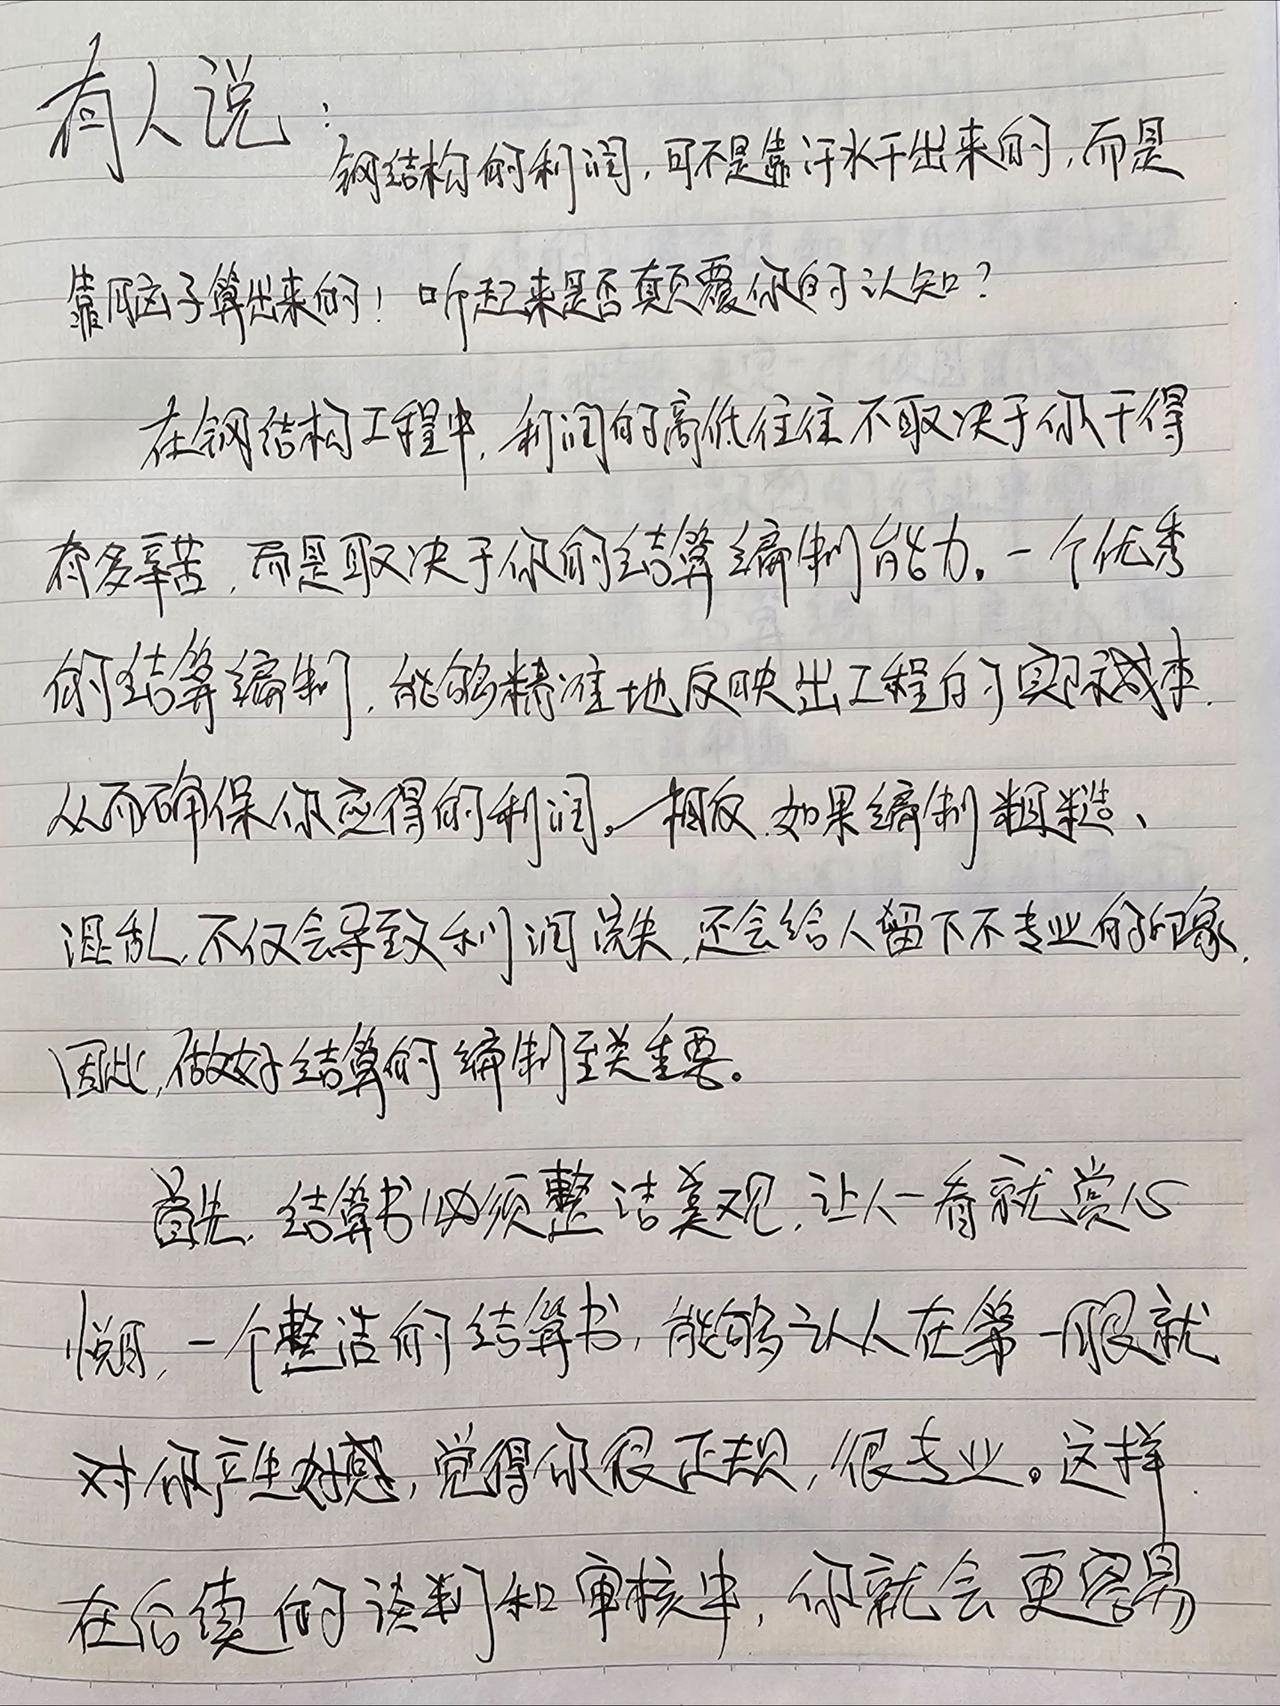 有人说：
钢结构的利润，可不是靠汗水干出来的，而是
靠用脑子算出来的！听起来是否颠覆你的认知？
在钢结构工程中，利润的高低往往不取决于你干得
有多辛苦，而是取决于你的结算编制能力。一个优秀
的结算编制，能够精准地反映出工程的实际成本，
从而确保你应得的利润。相反，如果编制粗糙、
混乱，不仅会导致利润流失，还会给人留下不专业的印象，
因此，做好结算的编制至关重要。
首先，结算书必须整洁美观，让人一看就赏心
悦目，一个整洁的结算书，能够认人在第一眼就
对你产生好感，觉得你很正规，很专业。这样
在后续的谈判和审核中，你就会更容易